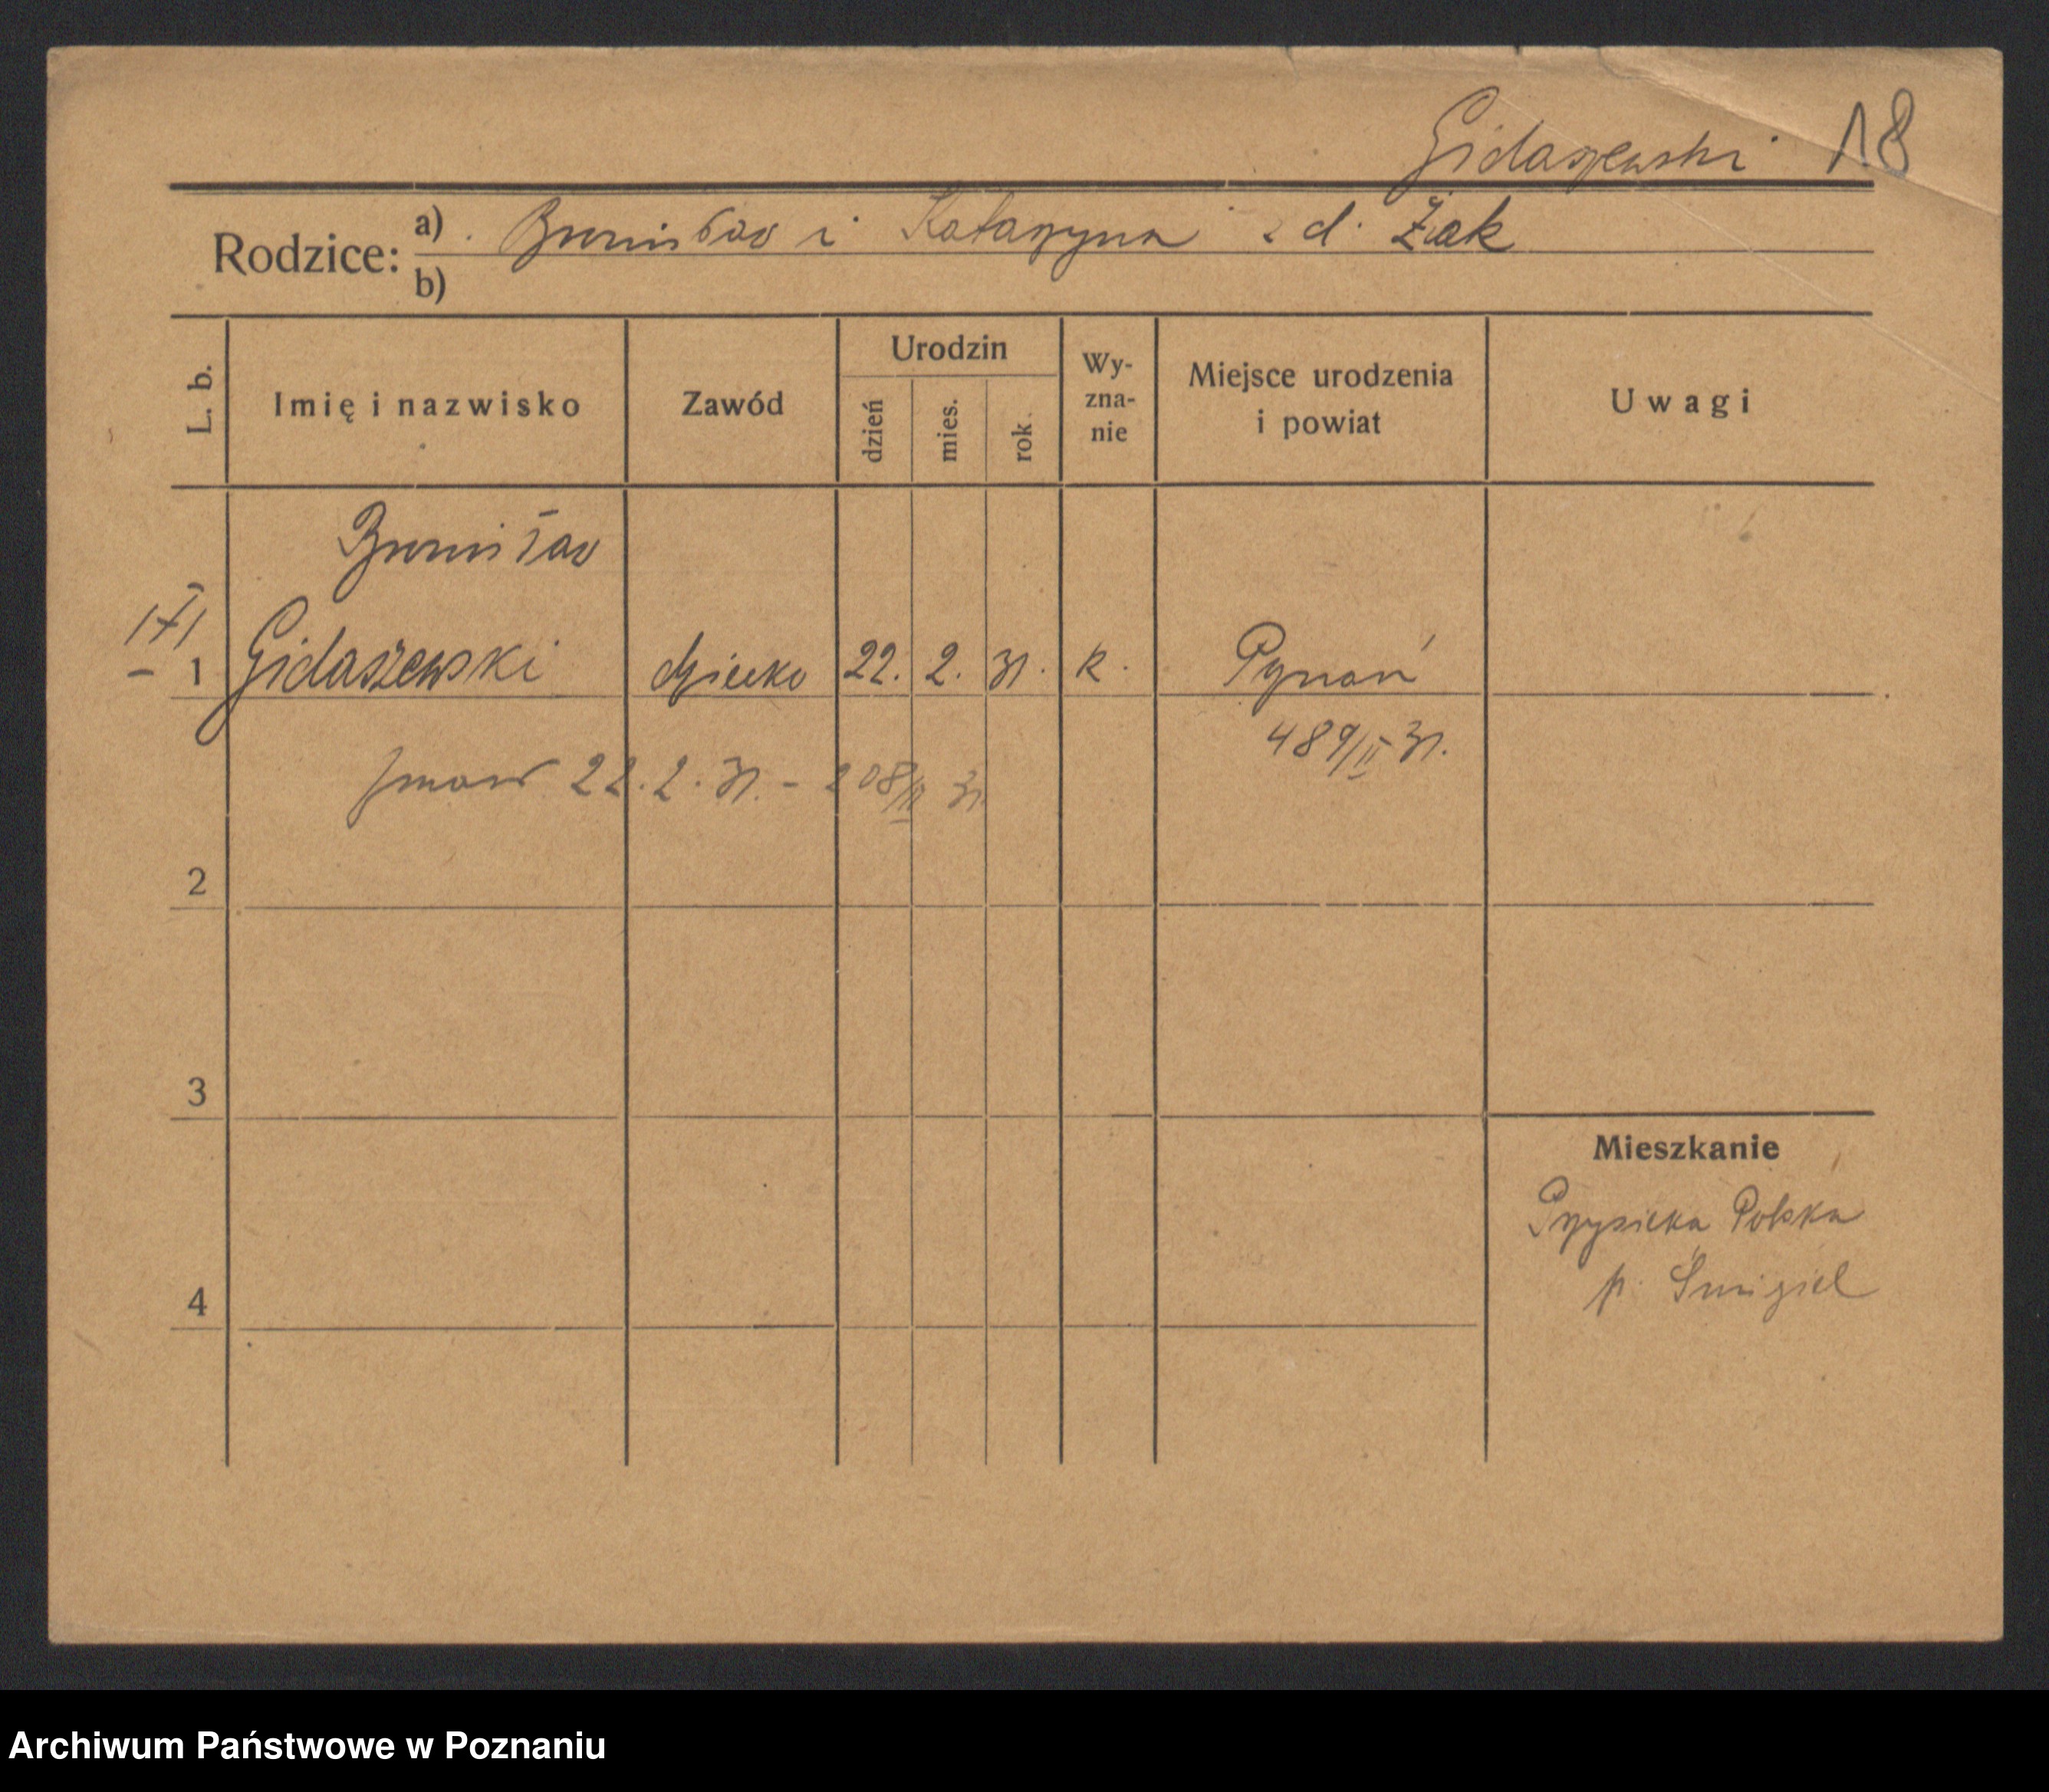 Gidaszewski 18
Rodzice: a) Bronisław i Katarzyna z d. Żak
b)
L. b. Imię i nazwisko Zawód Urodzin dzień mies. rok Wy-zna-nie Miejsce urodzenia i powiat Uwagi
Bronisław
1 Gidaszewski dziecko 22. 2. 31. k. Poznań
489/II 31.
zmarł 22. 2. 31. - 208/II 31
2
3
Mieszkanie
Przysieka Polska
p. Śmigiel
4
Archiwum Państwowe w Poznaniu